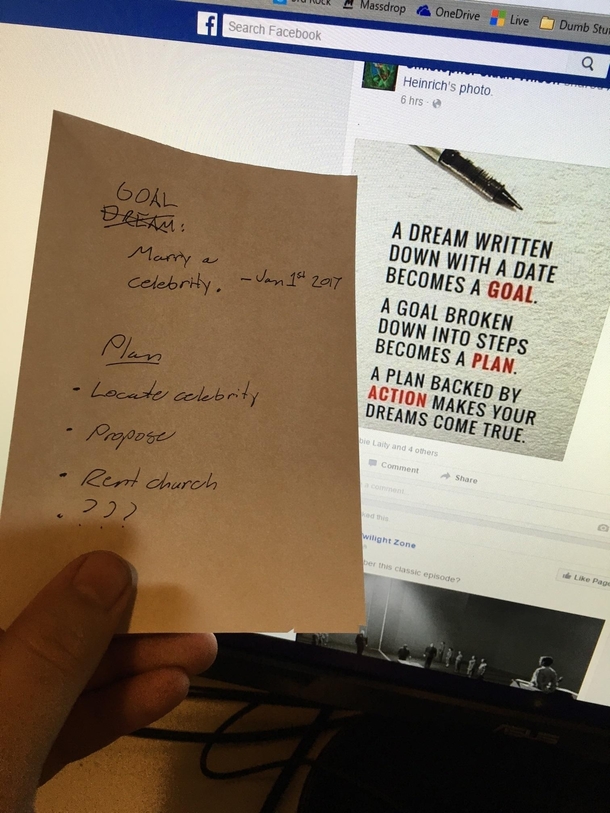 Massdrop
OneDrive
Live
Dumb
Search Facebook
Heinrich's photo.
6 hrs
GOAL
DREAM:
Marry a
celebrity. – Jan 1st 2017
Plan
• Locate celebrity
• Propose
• Rent church
• ???
A DREAM WRITTEN
DOWN WITH A DATE
BECOMES A GOAL.
A GOAL BROKEN
DOWN INTO STEPS
BECOMES A PLAN.
A PLAN BACKED BY
ACTION MAKES YOUR
DREAMS COME TRUE.
Lally and 4 others
Comment
Share
a comment
this
Zone
this classic episode?
Like Page
ASUS